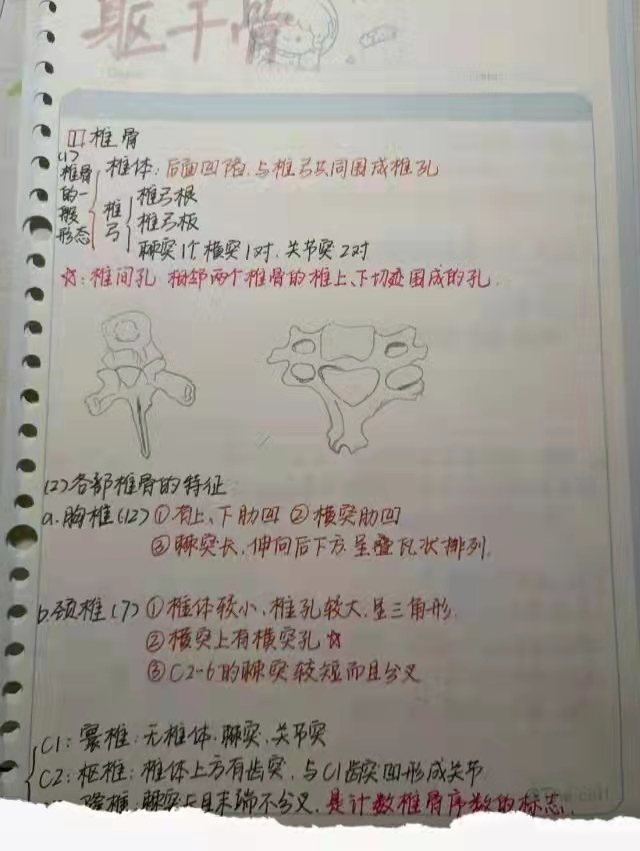 躯干骨
椎骨
(1)椎骨的一般形态
椎体：后面凹陷，与椎弓共同围成椎孔
椎弓
椎弓根
椎弓板
棘突1个 横突1对、关节突2对
☆：椎间孔 相邻两个椎骨的椎上、下切迹围成的孔.
(2)各部椎骨的特征
a.胸椎(12) ①有上、下肋凹 ②横突肋凹
③棘突长,伸向后下方,呈叠瓦状排列.
b.颈椎(7) ①椎体较小,椎孔较大,呈三角形.
②横突上有横突孔☆
③C2-6的棘突较短而且分叉
C1：寰椎：无椎体、棘突、关节突
C2：枢椎：椎体上方有齿突，与C1齿突凹形成关节
隆椎：棘突 且末端不分叉，是计数椎骨序数的标志.